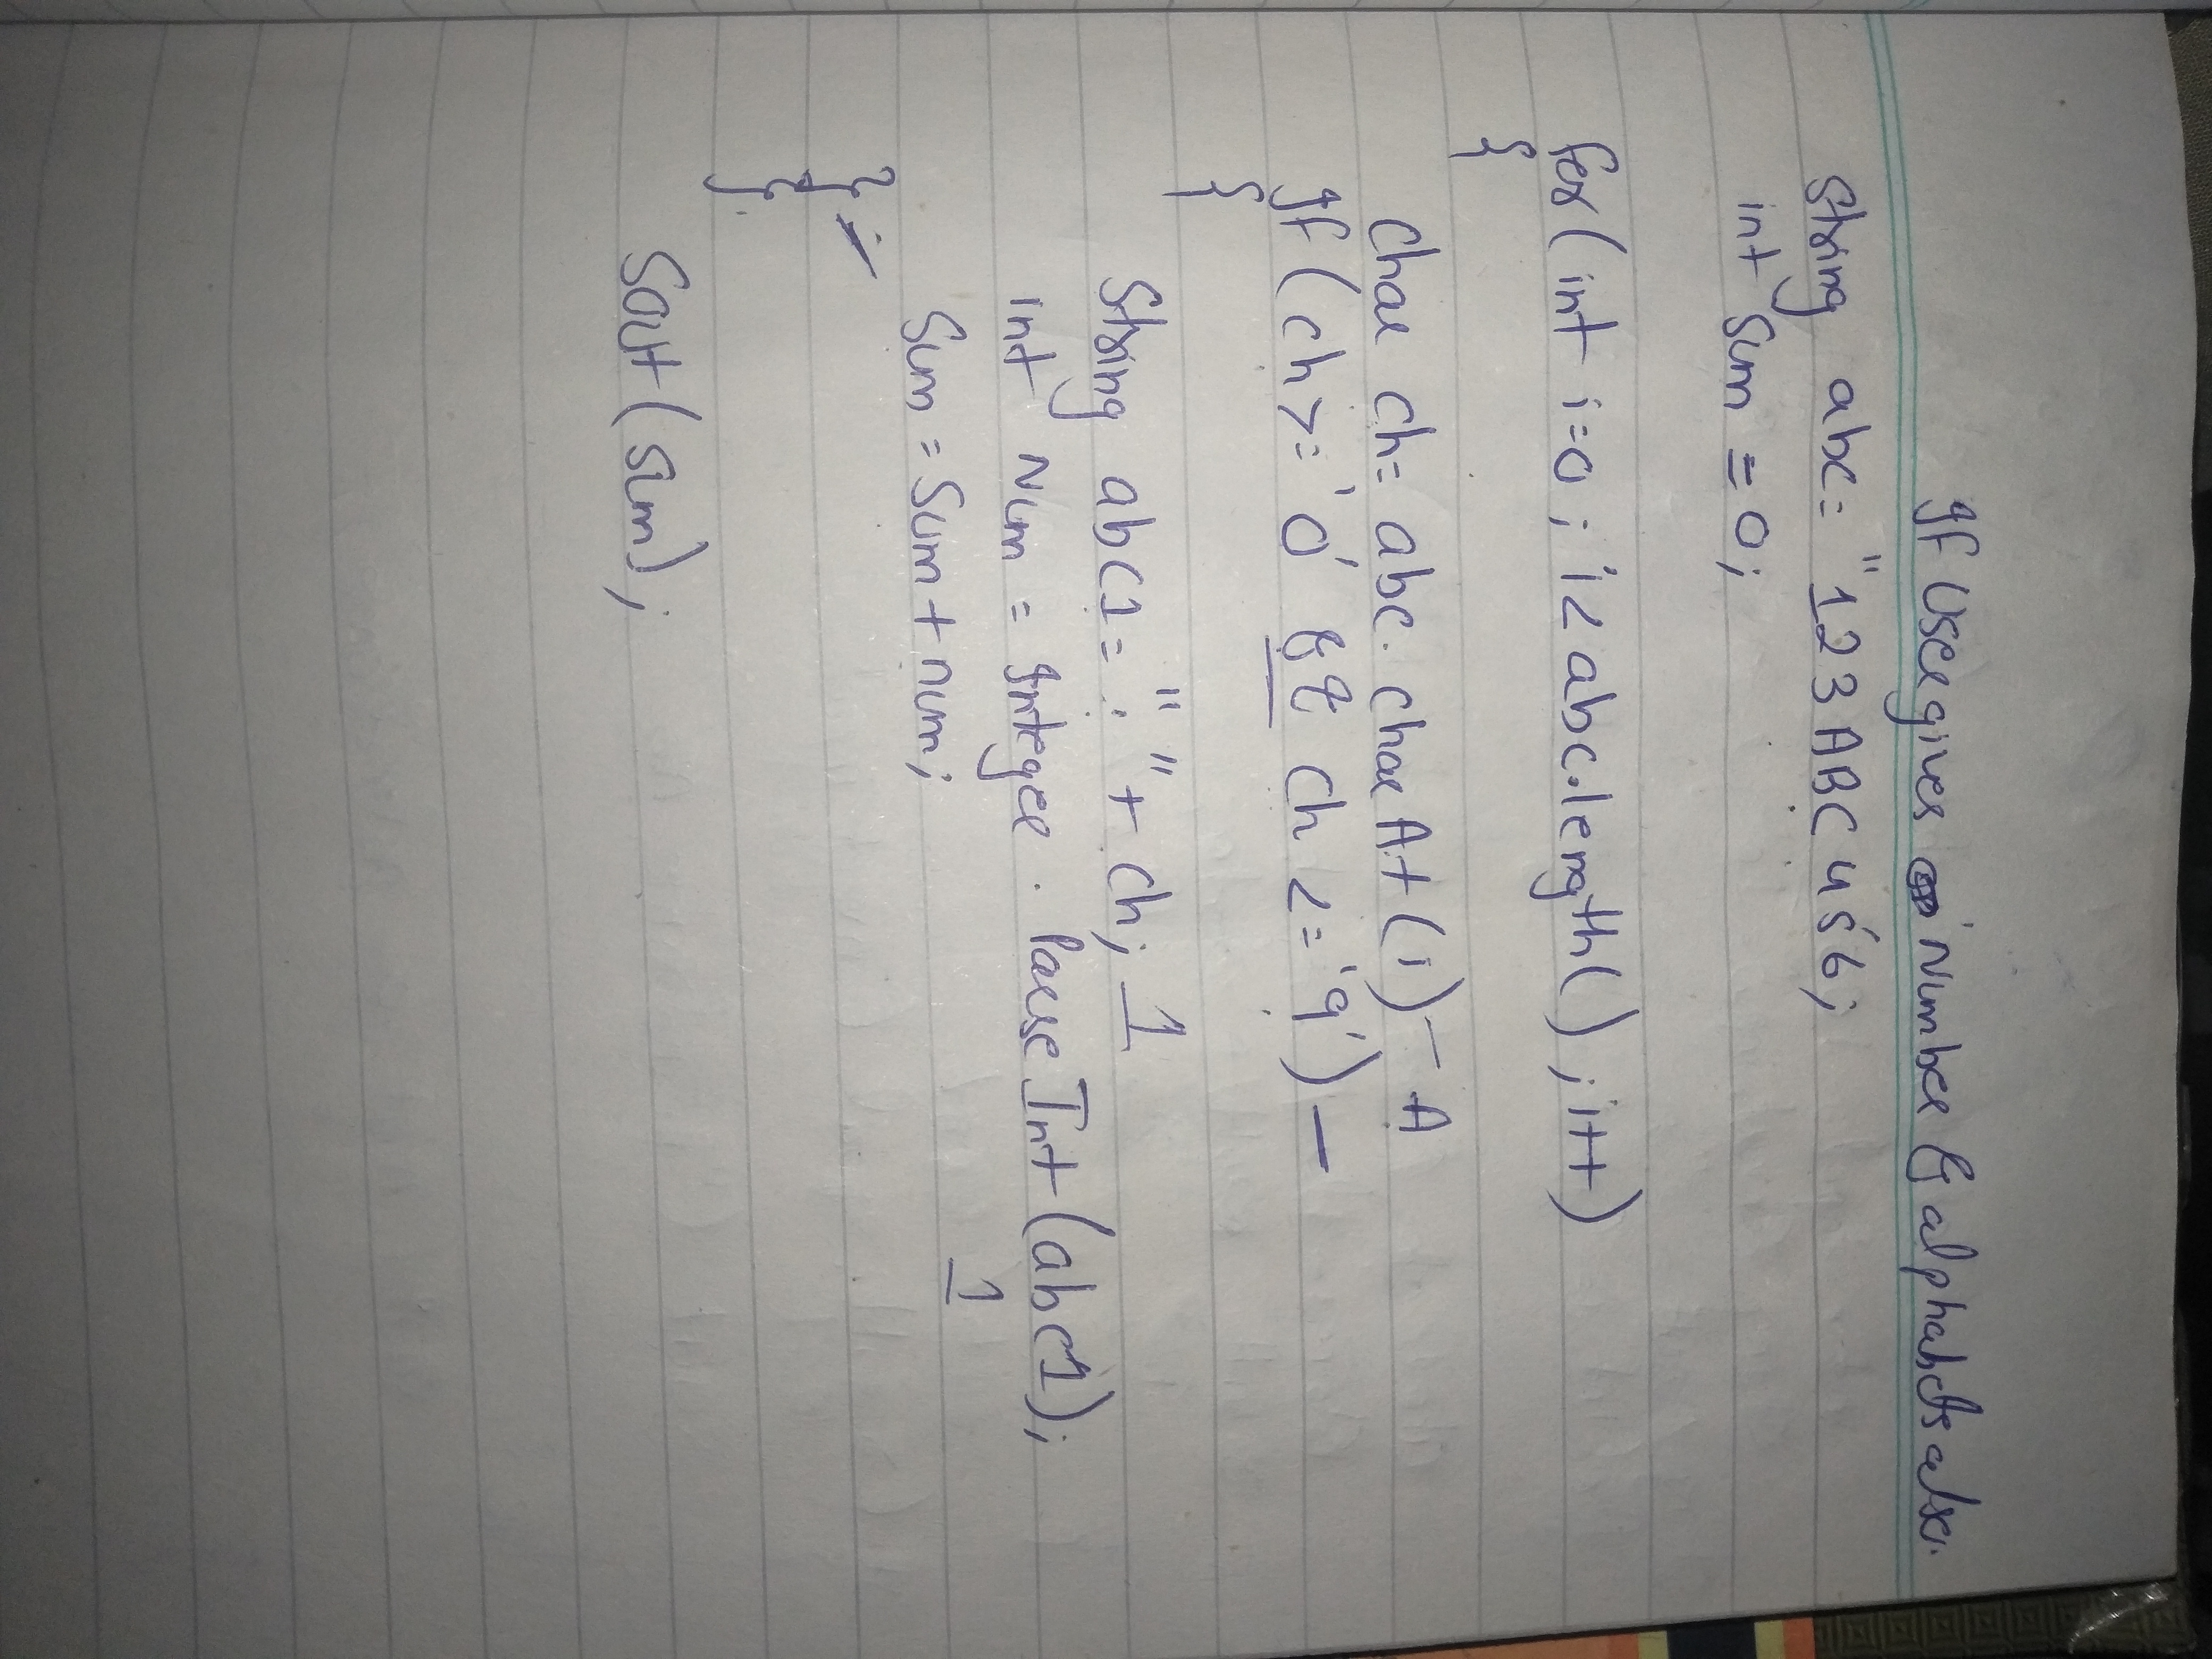 If user gives Number & alphabets also.
String abc = "123ABC456;
int Sum = 0;
for (int i=0; i<abc.length(); i++)
{
Char ch= abc.charAt(i) - A
If (ch>='0' && ch <='9') -
{
String abc1 = "" + ch; 1
int Num = Integer.ParseInt(abc1);
1
Sum = Sum + num;
}
}
Sout (sum);